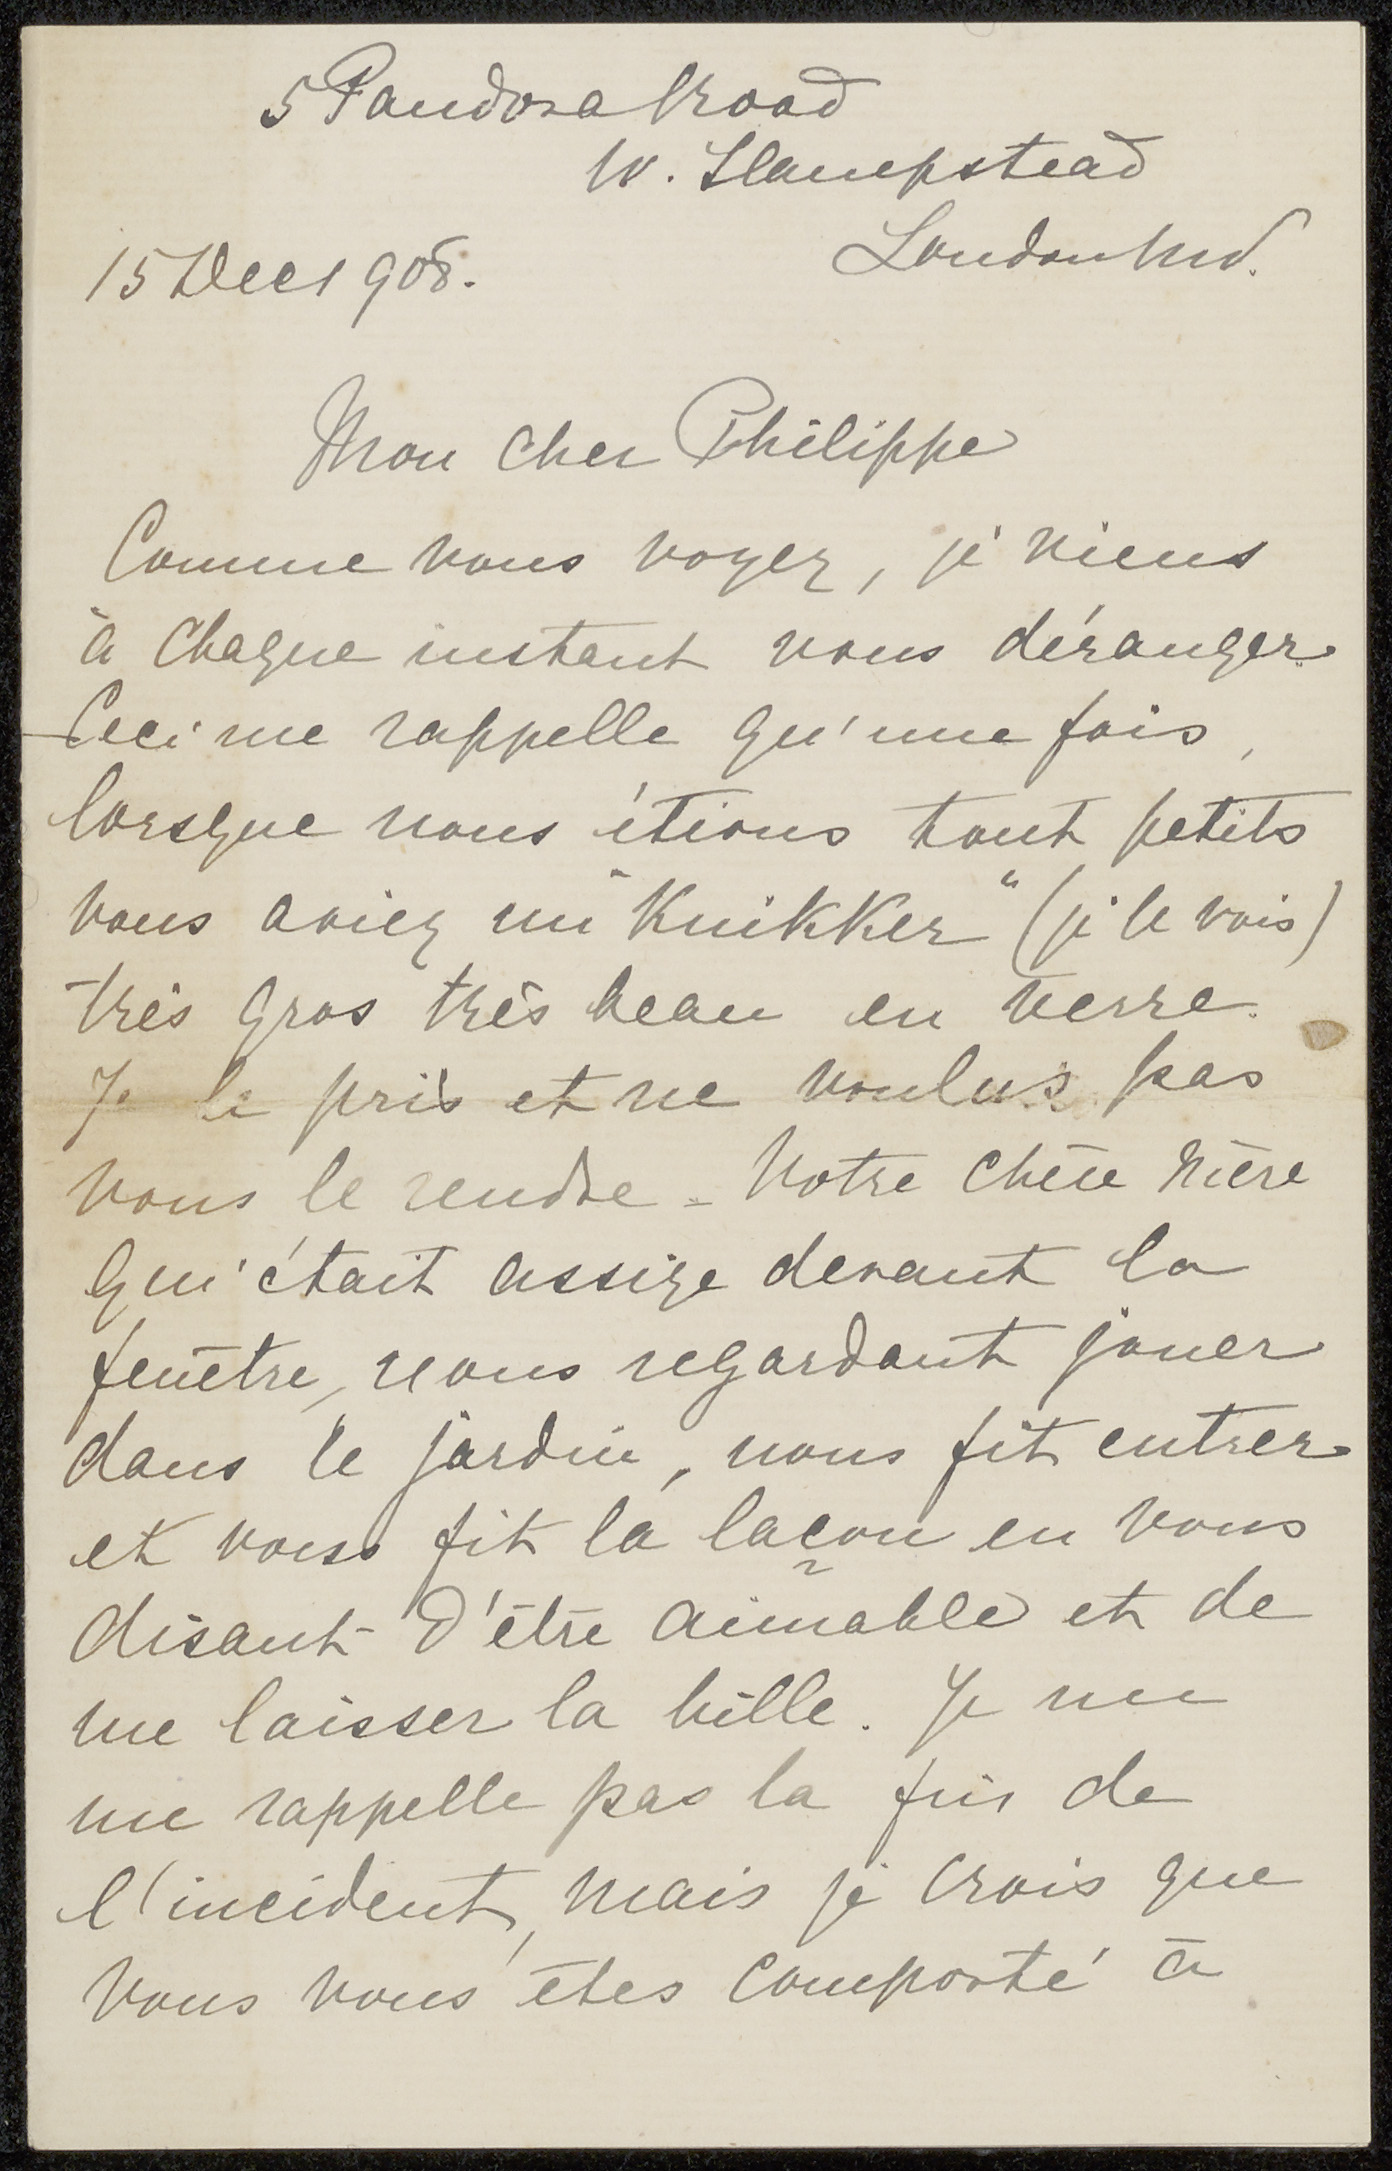 5 Pandora Road
W. Hampstead
London NW.
15 Dec 1908.
Mon cher Philippe
Comme vous voyez, je viens
à chaque instant vous déranger.
Ceci me rappelle qu'une fois,
lorsque nous étions tout petits
vous aviez un "Knikker" (je le vois)
très gros très beau en verre.
Je le pris et ne voulus pas
vous le rendre - Votre chère Mère
qui était assize devant la
fenêtre, nous regardant jouer
dans le jardin, nous fit entrer
et vous fit la laçon en vous
disant d'être aimable et de
me laisser la bille. Je ne
me rappelle pas la fin de
l'incident, mais je crois que
vous vous êtes comporté à